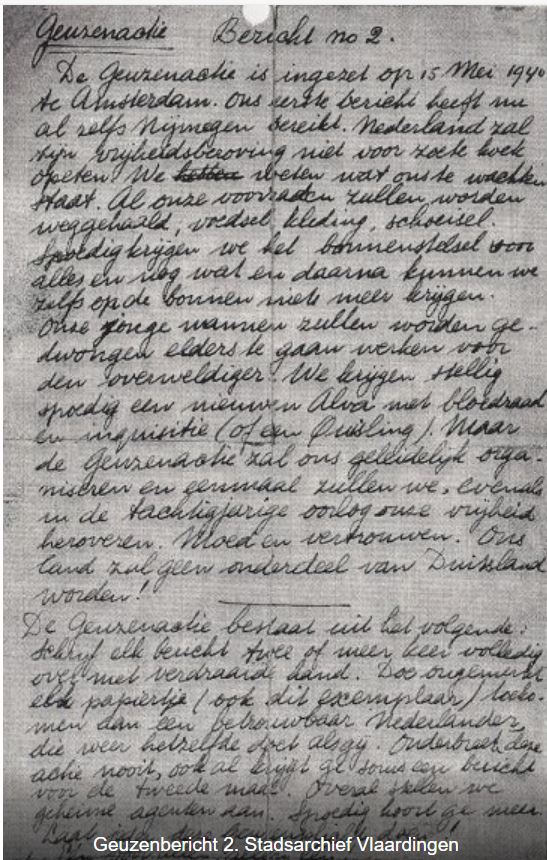 Geuzenactie Bericht no 2.
De Geuzenactie is ingezet op 15 Mei 1940
te Amsterdam. Ons eerste bericht heeft nu
al zelfs Nijmegen bereikt. Nederland zal
zijn vrijheidsberoving niet voor zoete koek
opeten. We hebben weten wat ons te wachten
staat. Al onze voorraden zullen worden
weggehaald, voedsel, kleding, schoeisel.
Spoedig krijgen we het bonnenstelsel voor
alles en nog wat en daarna kunnen we
zelfs op de bonnen niets meer krijgen.
Onze jonge mannen zullen worden ge-
dwongen elders te gaan werken voor
den overweldiger. We krijgen stellig
spoedig een nieuwen Alva met bloedraad
en inquisitie (of een Quisling). Maar
de Geuzenactie zal ons geleidelijk orga-
niseren en eenmaal zullen we, evenals
in de tachtigjarige oorlog onze vrijheid
heroveren. Moed en vertrouwen. Ons
land zal geen onderdeel van Duitsland
worden!
De Geuzenactie bestaat uit het volgende:
Schrijf elk bericht twee of meer keer volledig
over met verdraaide hand. Doe ongemerkt
elk papiertje (ook dit exemplaar) toeko-
men aan een betrouwbaar Nederlander,
die weer hetzelfde doet als gij. Onderbreek deze
actie nooit, ook al krijgt ge soms een bericht
voor de tweede maal. Overal stellen we
geheime agenten aan. Spoedig hoort ge meer.
Geuzenbericht 2. Stadsarchief Vlaardingen